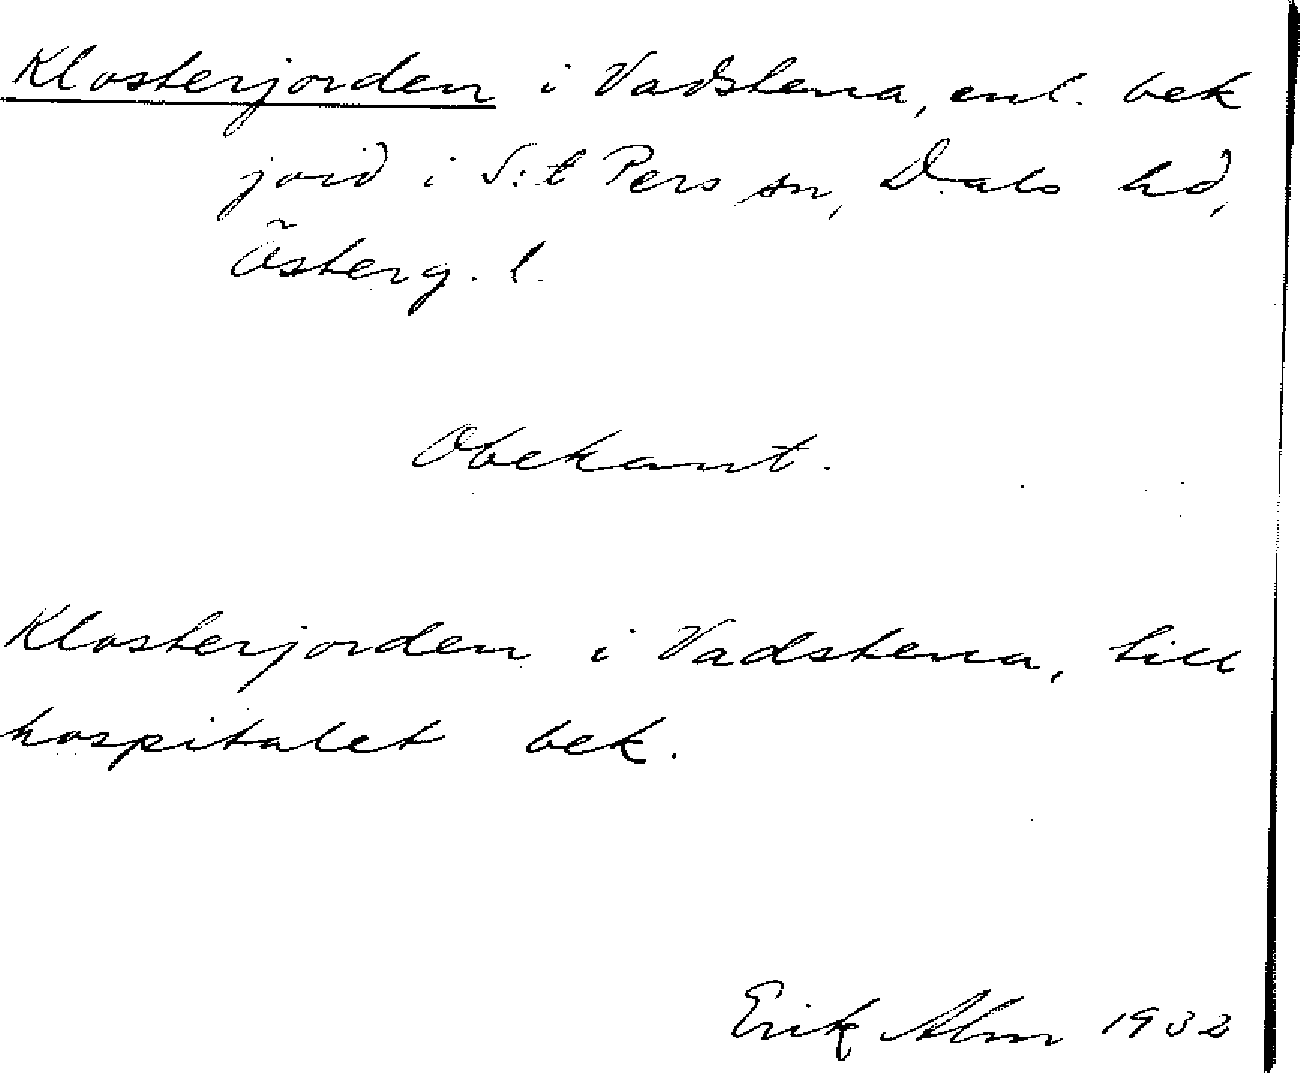 Klosterjorden i Vadstena, enl. bek
jord i S:t Pers sn, Dals hd,
Österg. l.
Obekant.
Klosterjorden i Vadstena, till
hospitalet bek.
Erik Alm 1932